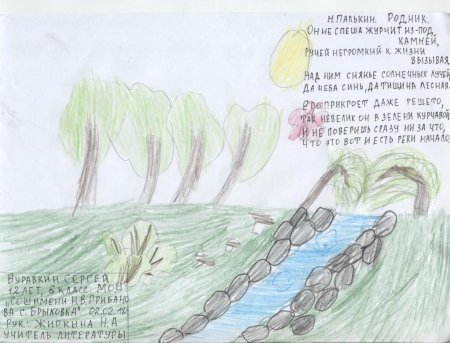 Н.ПАЛЬКИН. РОДНИК.
ОН НЕ СПЕША ЖУРЧИТ ИЗ-ПОД
КАМНЕЙ,
РУЧЕЙ НЕГРОМКИЙ К ЖИЗНИ
ВЫЗЫВАЯ.
НАД НИМ СИЯНЬЕ СОЛНЕЧНЫХ ЛУЧЕЙ
ДА НЕБА СИНЬ, ДА ТИШИНА ЛЕСНАЯ.
ЕГО ПРИКРОЕТ ДАЖЕ РЕШЕТО,
ТАК НЕВЕЛИК ОН В ЗЕЛЕНИ КУРЧАВОЙ
И НЕ ПОВЕРИШЬ СРАЗУ НИ ЗА ЧТО,
ЧТО ЭТО ВОТ И ЕСТЬ РЕКИ НАЧАЛО.
ВУРАВКИН СЕРГЕЙ
12 ЛЕТ, 6 КЛАСС МОУ
"СОШ ИМЕНИ Н.В.ГРИБАНО
ВА С. БРЫКОВКА"
РУК: ЖИРКИНА Н.А
УЧИТЕЛЬ ЛИТЕРАТУРЫ